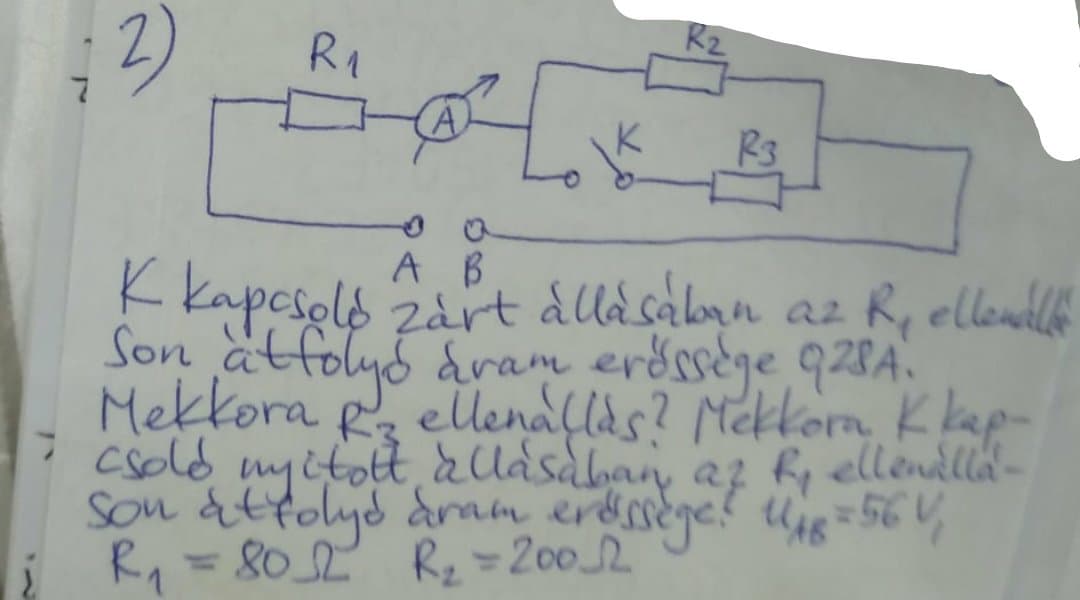 2)
R1
R2
A
K
R3
A B
K kapcsoló zárt állásában az R1 ellenállá
son átfolyó áram erőssége 0,28A.
Mekkora R3 ellenállás? Mekkora K kap-
csoló nyitott állásában az R1 ellenállá-
son átfolyó áram erőssége? UAB = 56 V,
R1 = 80 Ω R2 = 200 Ω